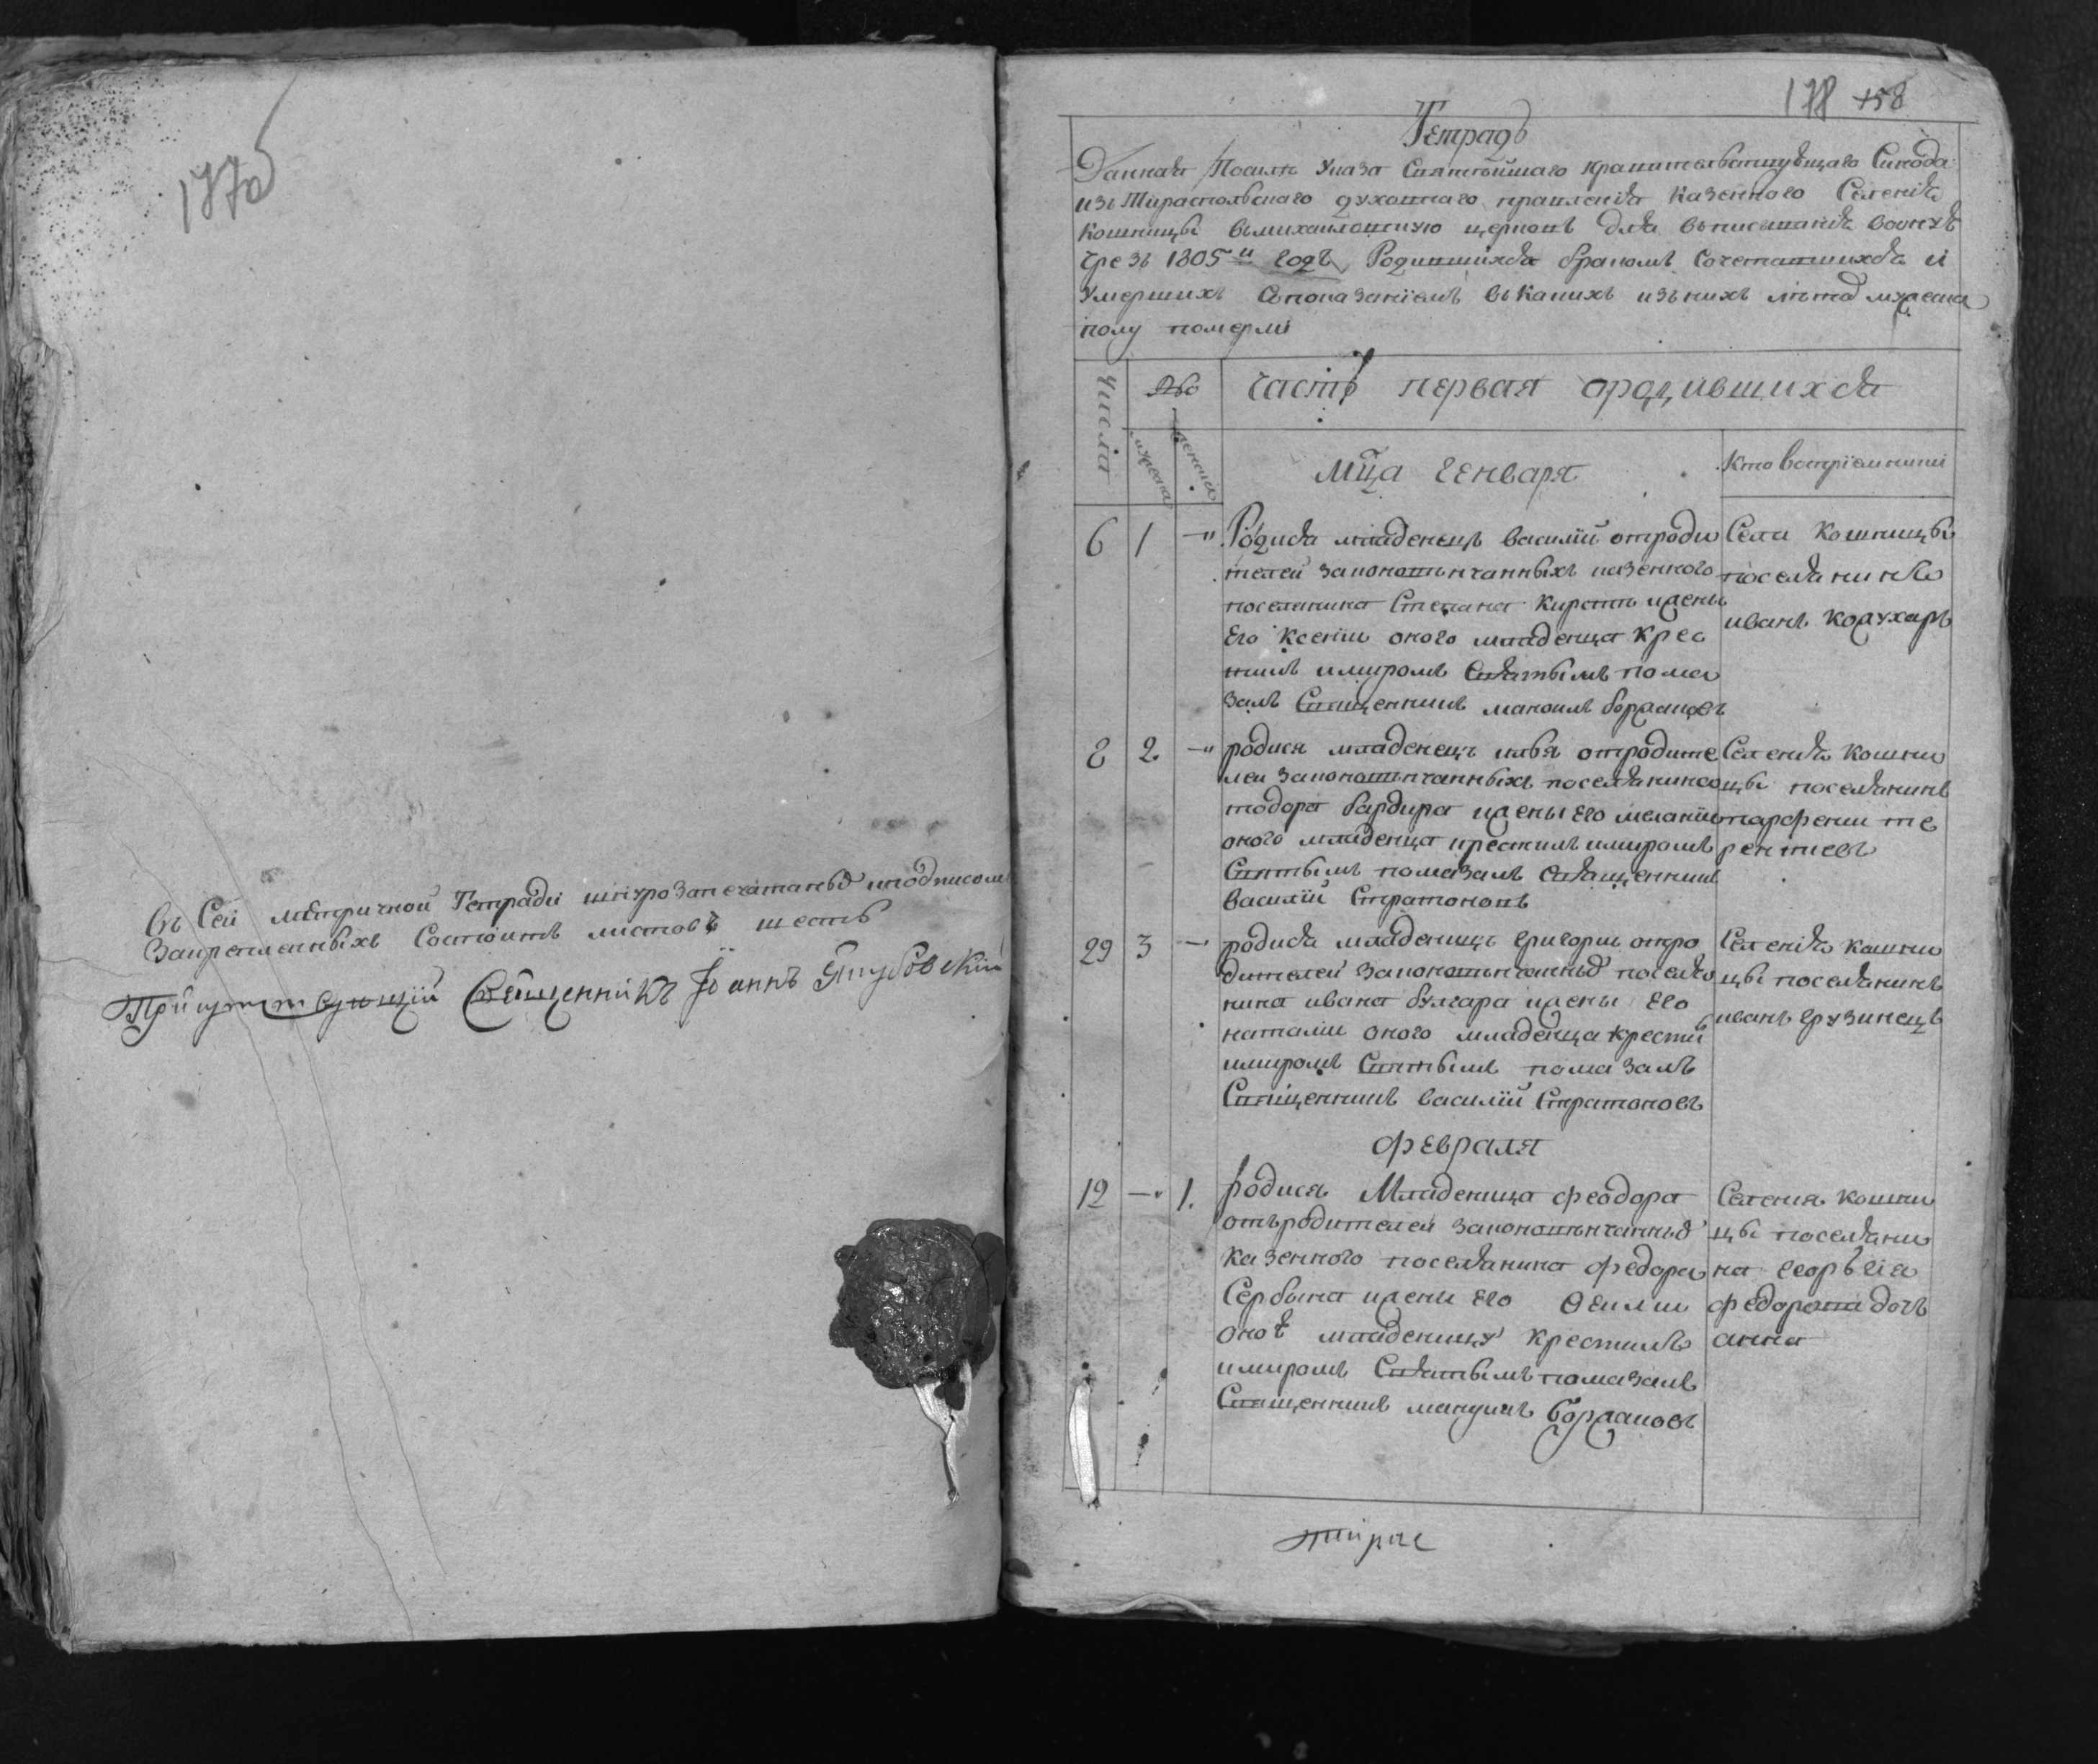 177об
Въ Сей метричной Тетради шнурозапечатаной иподписомъ
Закрепленныхъ Состоитъ листовъ шесть
Присутствующій Священникъ Іоаннъ
178 158
Тетрадь
Данная Посилѣ Указа Святѣйшаго правительствующаго Синода
изъ Тираспольскаго духовнаго правленія казенного Селенія
кошницы вмихайловскую церковь для вписыванія воонуѣ
чрезъ 1805й годъ Родившихся бракомъ Сочетавшихся и
умершихъ Спопоказаніемъ въ какихъ изъ нихъ лѣта мужеска
полу померли
Числа
мужеска
женска
Часть первая ородившихся
мца генваря
Кто воспріемники
6 1 —" Родися младенецъ василій отроди
телей законовѣнчанныхъ казенного
поселянина Степана ижены
его ксеніи оного младенца крес
тилъ имиромъ Святымъ пома
залъ Священникъ маноилъ
Села кошницы
поселянинъ
иванъ кожухаръ
8 2 —" родися младенецъ отродите
лей законовѣнчанныхъ поселянина
тодора бардира ижены его меланіи
оного младенца крестилъ имиромъ
Святымъ помазалъ Священникъ
василій Стратоновъ
Селенія кошни
цы поселянинъ
парфений те
рентиевъ
29 3 — родися младенецъ григорий отро
дителей законовѣнчанныхъ поселя
нина ивана булгара ижены его
наталии оного младенца крести
имиромъ Святымъ помазалъ
Священникъ василій Стратоновъ
Селенія кошни
цы поселянинъ
иванъ грузинецъ
февраля
12 —" 1. родися Младеница феодора
отъродителей законовѣнчанныхъ
казенного поселянина федора
Сербина ижены его
оноѣ младеницу крестилъ
имиромъ Святымъ помазалъ
Священникъ мануилъ
Селения кошни
цы поселяни
на георьгія
федорова дочь
анна
тирас